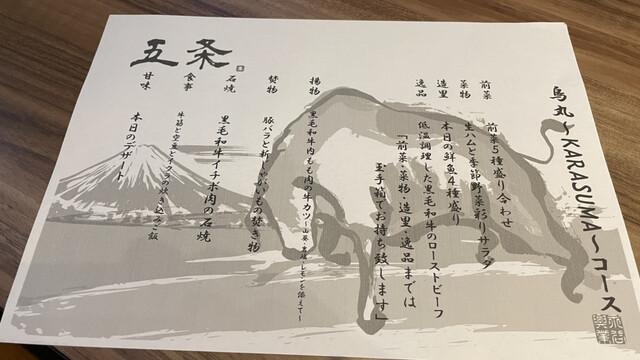 烏丸～KARASUMA～コース
前菜 前菜5種盛り合わせ
菜物 生ハムと季節野菜彩りサラダ
造里 本日の鮮魚4種盛り
逸品 低温調理した黒毛和牛のローストビーフ
「前菜・菜物・造里・逸品までは
玉手箱でお持ち致します」
揚物 黒毛和牛内もも肉の牛カツ～山葵・岩塩・レモンを添えて～
焚物 豚バラと新じゃがいもの焚き物
石焼 黒毛和牛イチボ肉の石焼
食事 牛筋と空豆とアサリの炊き込みご飯
甘味 本日のデザート
五条